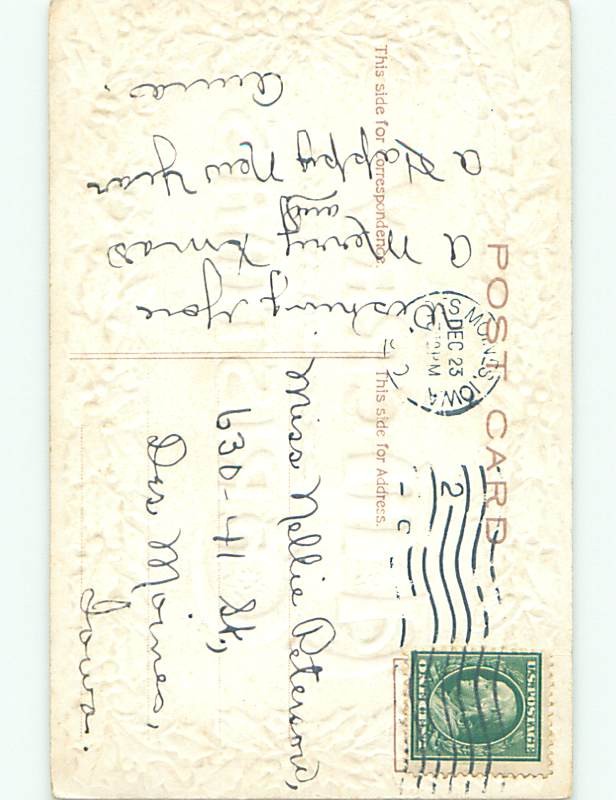 POST CARD
This side for Correspondence.
This side for Address.
S MOINES, IOWA
DEC 23
PM
2
U.S. POSTAGE
ONE CENT
Wishing You
a Merry Xmas
and
a Happy New Year
Anna.
Miss Nellie Peterson,
630-41 St.,
Des Moines,
Iowa.